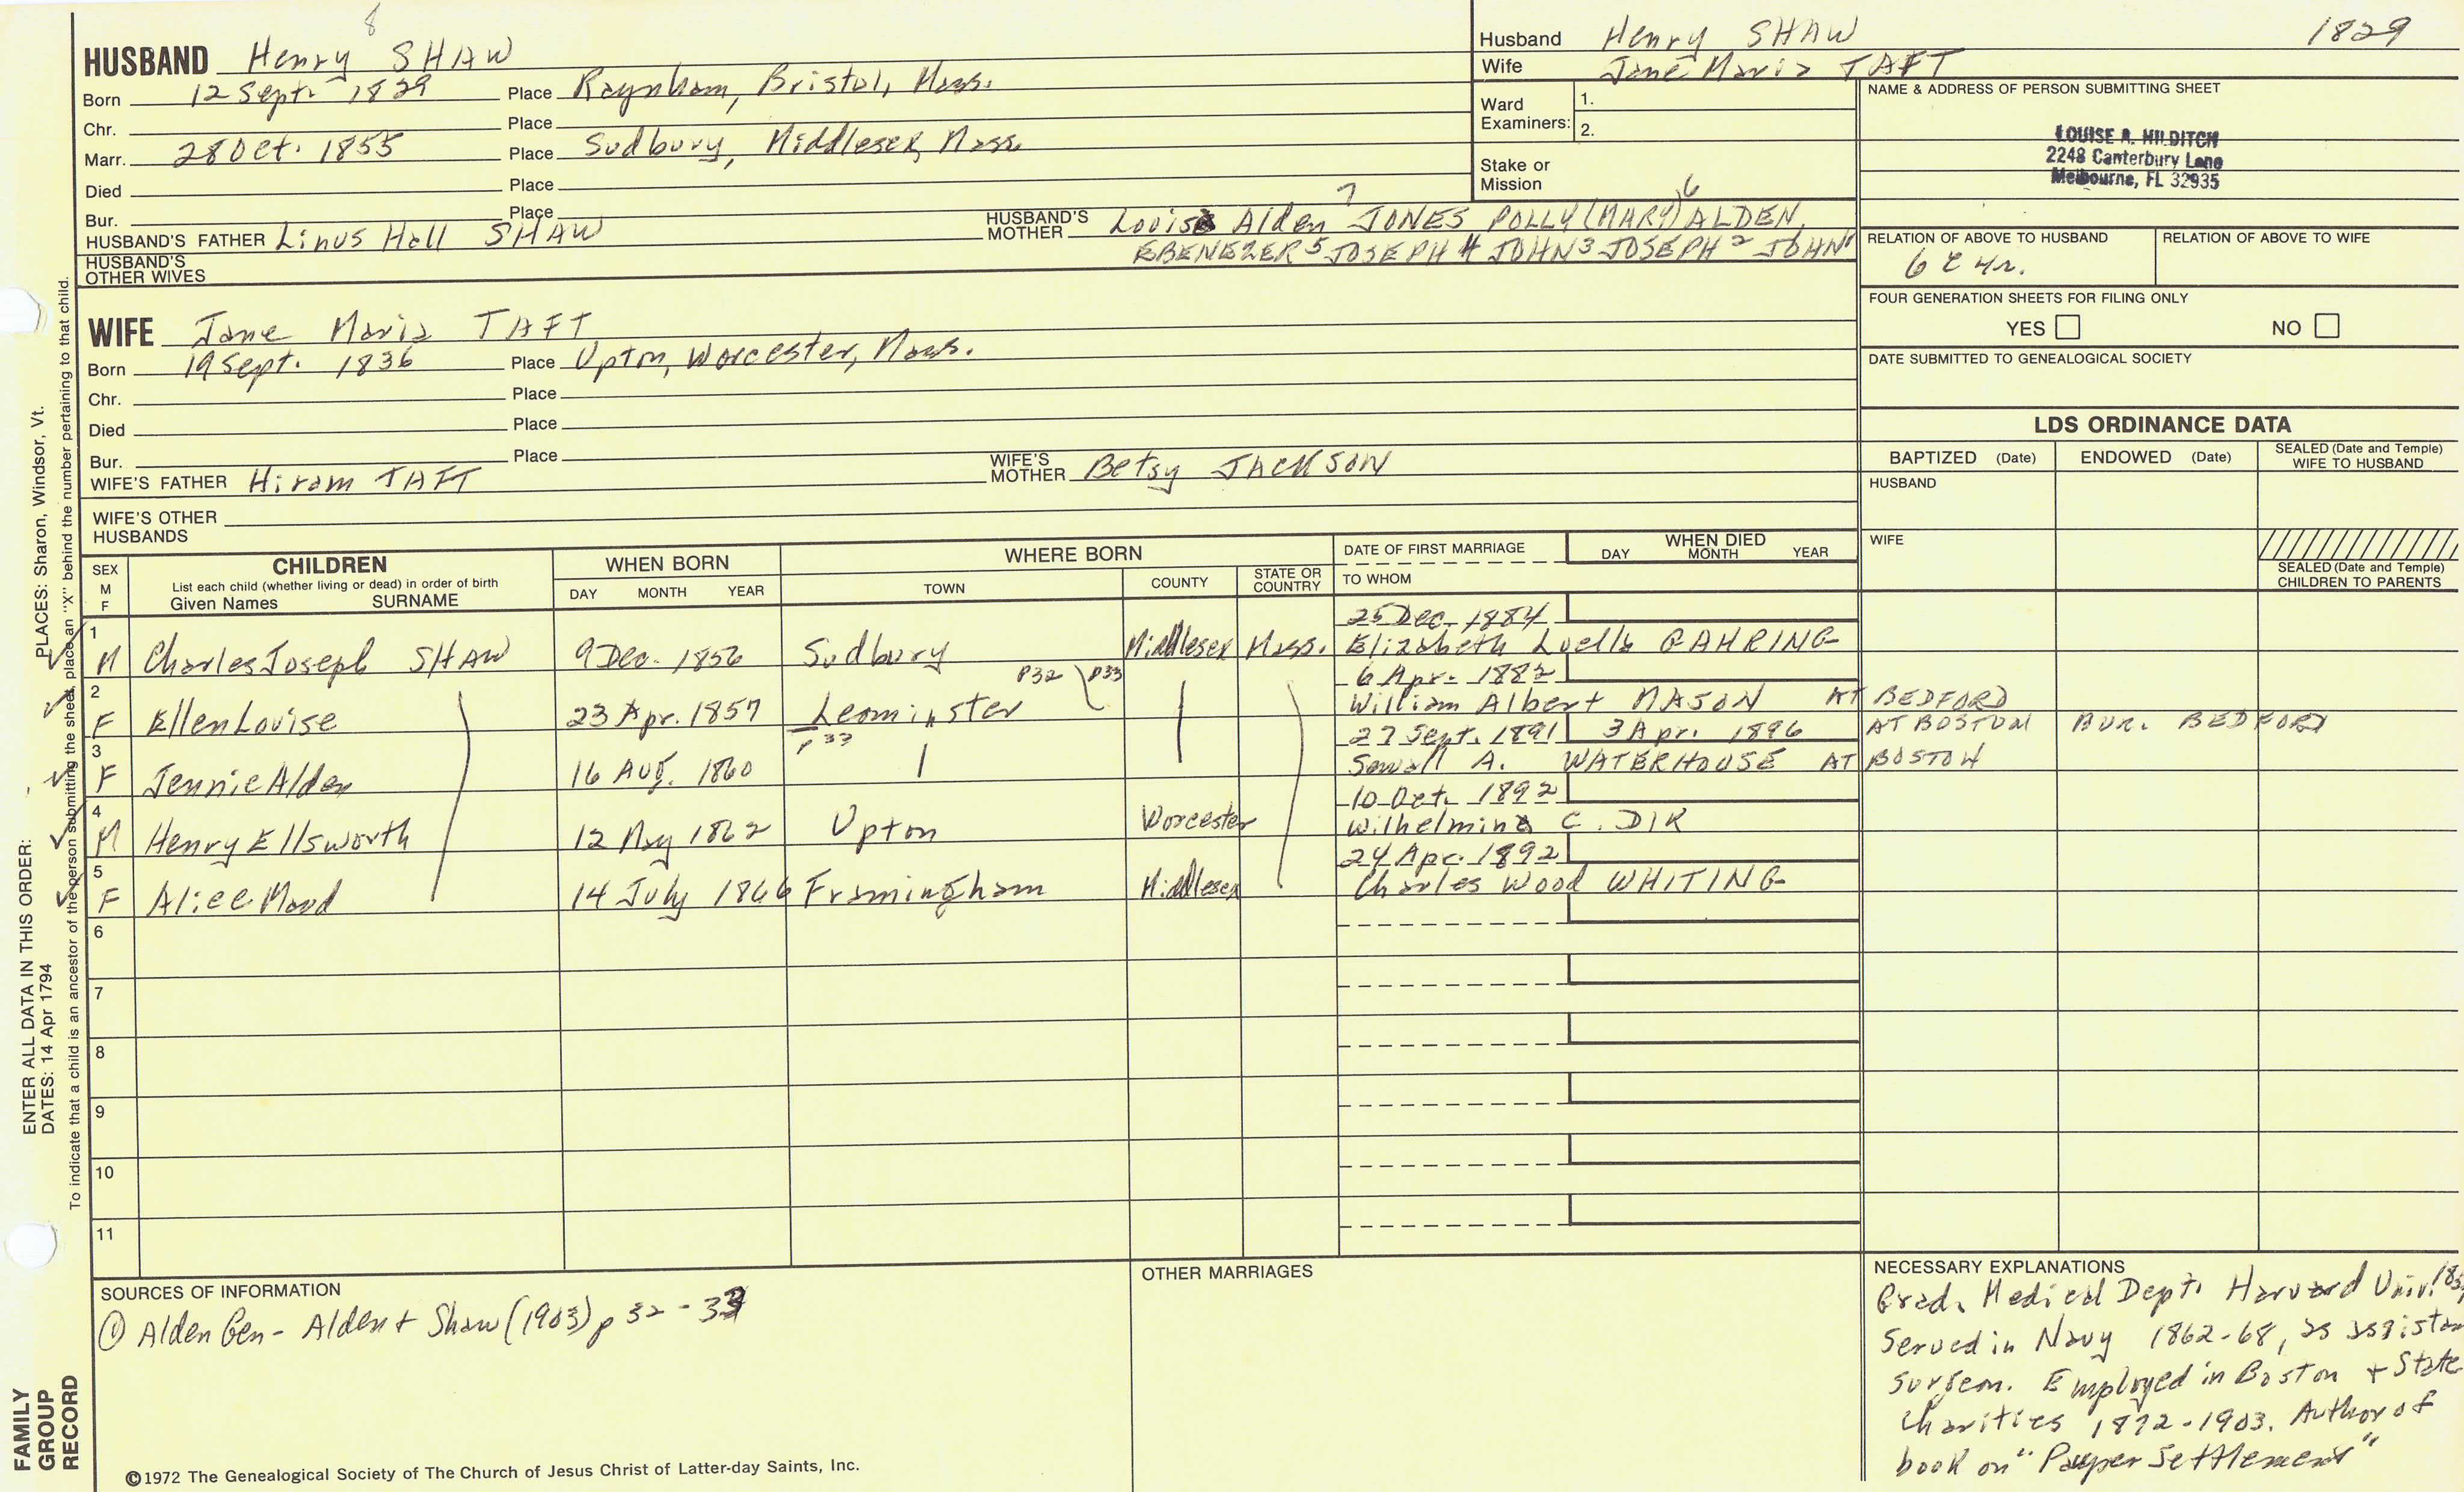 8
HUSBAND Henry SHAW
Born 12 Sept. 1829 Place Raynham, Bristol, Mass.
Chr. Place
Marr. 28 Oct. 1855 Place Sudbury, Middlesex, Mass.
Died Place
Bur. Place
HUSBAND'S FATHER Linus Hall SHAW HUSBAND'S MOTHER Louisa Alden 7 JONES POLLY (MARY) 6 ALDEN,
EBENEZER 5 JOSEPH 4 JOHN 3 JOSEPH 2 JOHN 1
HUSBAND'S OTHER WIVES
WIFE Jane Maria TAFT
Born 19 Sept. 1836 Place Upton, Worcester, Mass.
Chr. Place
Died Place
Bur. Place
WIFE'S FATHER Hiram TAFT WIFE'S MOTHER Betsy JACKSON
WIFE'S OTHER HUSBANDS
Husband Henry SHAW 1829
Wife Jane Maria TAFT
Ward Examiners: 1.
2.
Stake or Mission
NAME & ADDRESS OF PERSON SUBMITTING SHEET
LOUISE A. HILDITCH
2248 Canterbury Lane
Melbourne, FL 32935
RELATION OF ABOVE TO HUSBAND RELATION OF ABOVE TO WIFE
6 C 4 r.
FOUR GENERATION SHEETS FOR FILING ONLY
YES NO
DATE SUBMITTED TO GENEALOGICAL SOCIETY
LDS ORDINANCE DATA
BAPTIZED (Date) ENDOWED (Date) SEALED (Date and Temple) WIFE TO HUSBAND
HUSBAND
WIFE
SEALED (Date and Temple) CHILDREN TO PARENTS
SEX M F
CHILDREN
List each child (whether living or dead) in order of birth
Given Names SURNAME
WHEN BORN
DAY MONTH YEAR
WHERE BORN
TOWN COUNTY STATE OR COUNTRY
DATE OF FIRST MARRIAGE
TO WHOM
WHEN DIED
DAY MONTH YEAR
25 Dec. 1884
1 M Charles Joseph SHAW 9 Dec. 1856 Sudbury Middlesex Mass. Elizabeth Luella GAHRING
P32 P33 6 Apr. 1882
2 F Ellen Louise 23 Apr. 1857 Leominster William Albert MASON AT BEDFORD
p 33 27 Sept. 1891 3 Apr. 1896 AT BOSTON BUR. BEDFORD
3 F Jennie Alden 16 Aug. 1860 Sewall A. WATERHOUSE AT BOSTON
10 Oct. 1892
4 M Henry Ellsworth 12 May 1862 Upton Worcester Wilhelmina C. DIK
24 Apr. 1892
5 F Alice Maud 14 July 1866 Framingham Middlesex Charles Wood WHITING
6
7
8
9
10
11
SOURCES OF INFORMATION
① Alden Gen - Alden + Shaw (1903) p 32 - 33
OTHER MARRIAGES
NECESSARY EXPLANATIONS
Grad. Medical Dept. Harvard Univ.
Served in Navy 1862-68, as assistan
surgeon. Employed in Boston + State
Charities 1872-1903. Author of
book on "Pauper Settlement"
©1972 The Genealogical Society of The Church of Jesus Christ of Latter-day Saints, Inc.
FAMILY GROUP RECORD
ENTER ALL DATA IN THIS ORDER:
DATES: 14 Apr 1794
PLACES: Sharon, Windsor, Vt.
To indicate that a child is an ancestor of the person submitting the sheet, place an "X" behind the number pertaining to that child.